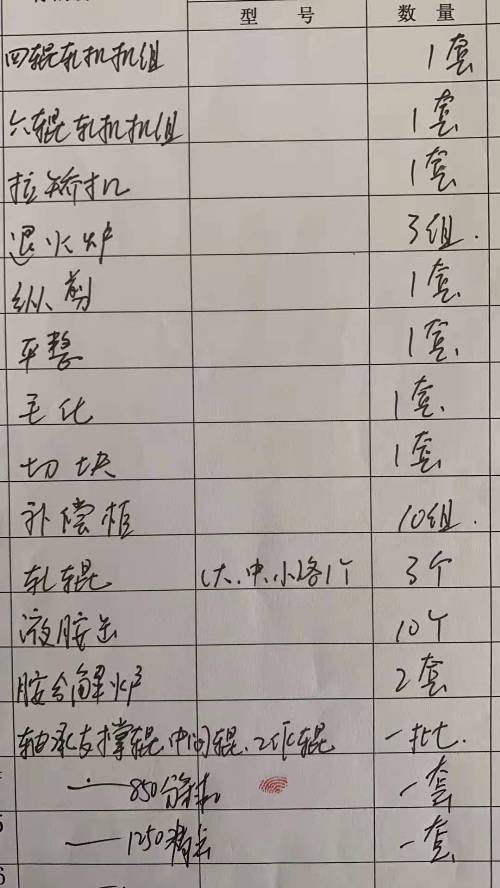 型 号 数 量
四辊轧机机组 1套
六辊轧机机组 1套
拉矫机 1套
退火炉 3组.
纵剪 1套
平整 1套
毛化 1套
切块 1套
补偿柜 10组.
轧辊 (大.中.小各1个 3个
液胺 10个
胺分解炉 2套
轴承支撑辊.中间辊.工作辊 一批.
850分 一套
1250 一套
5
6